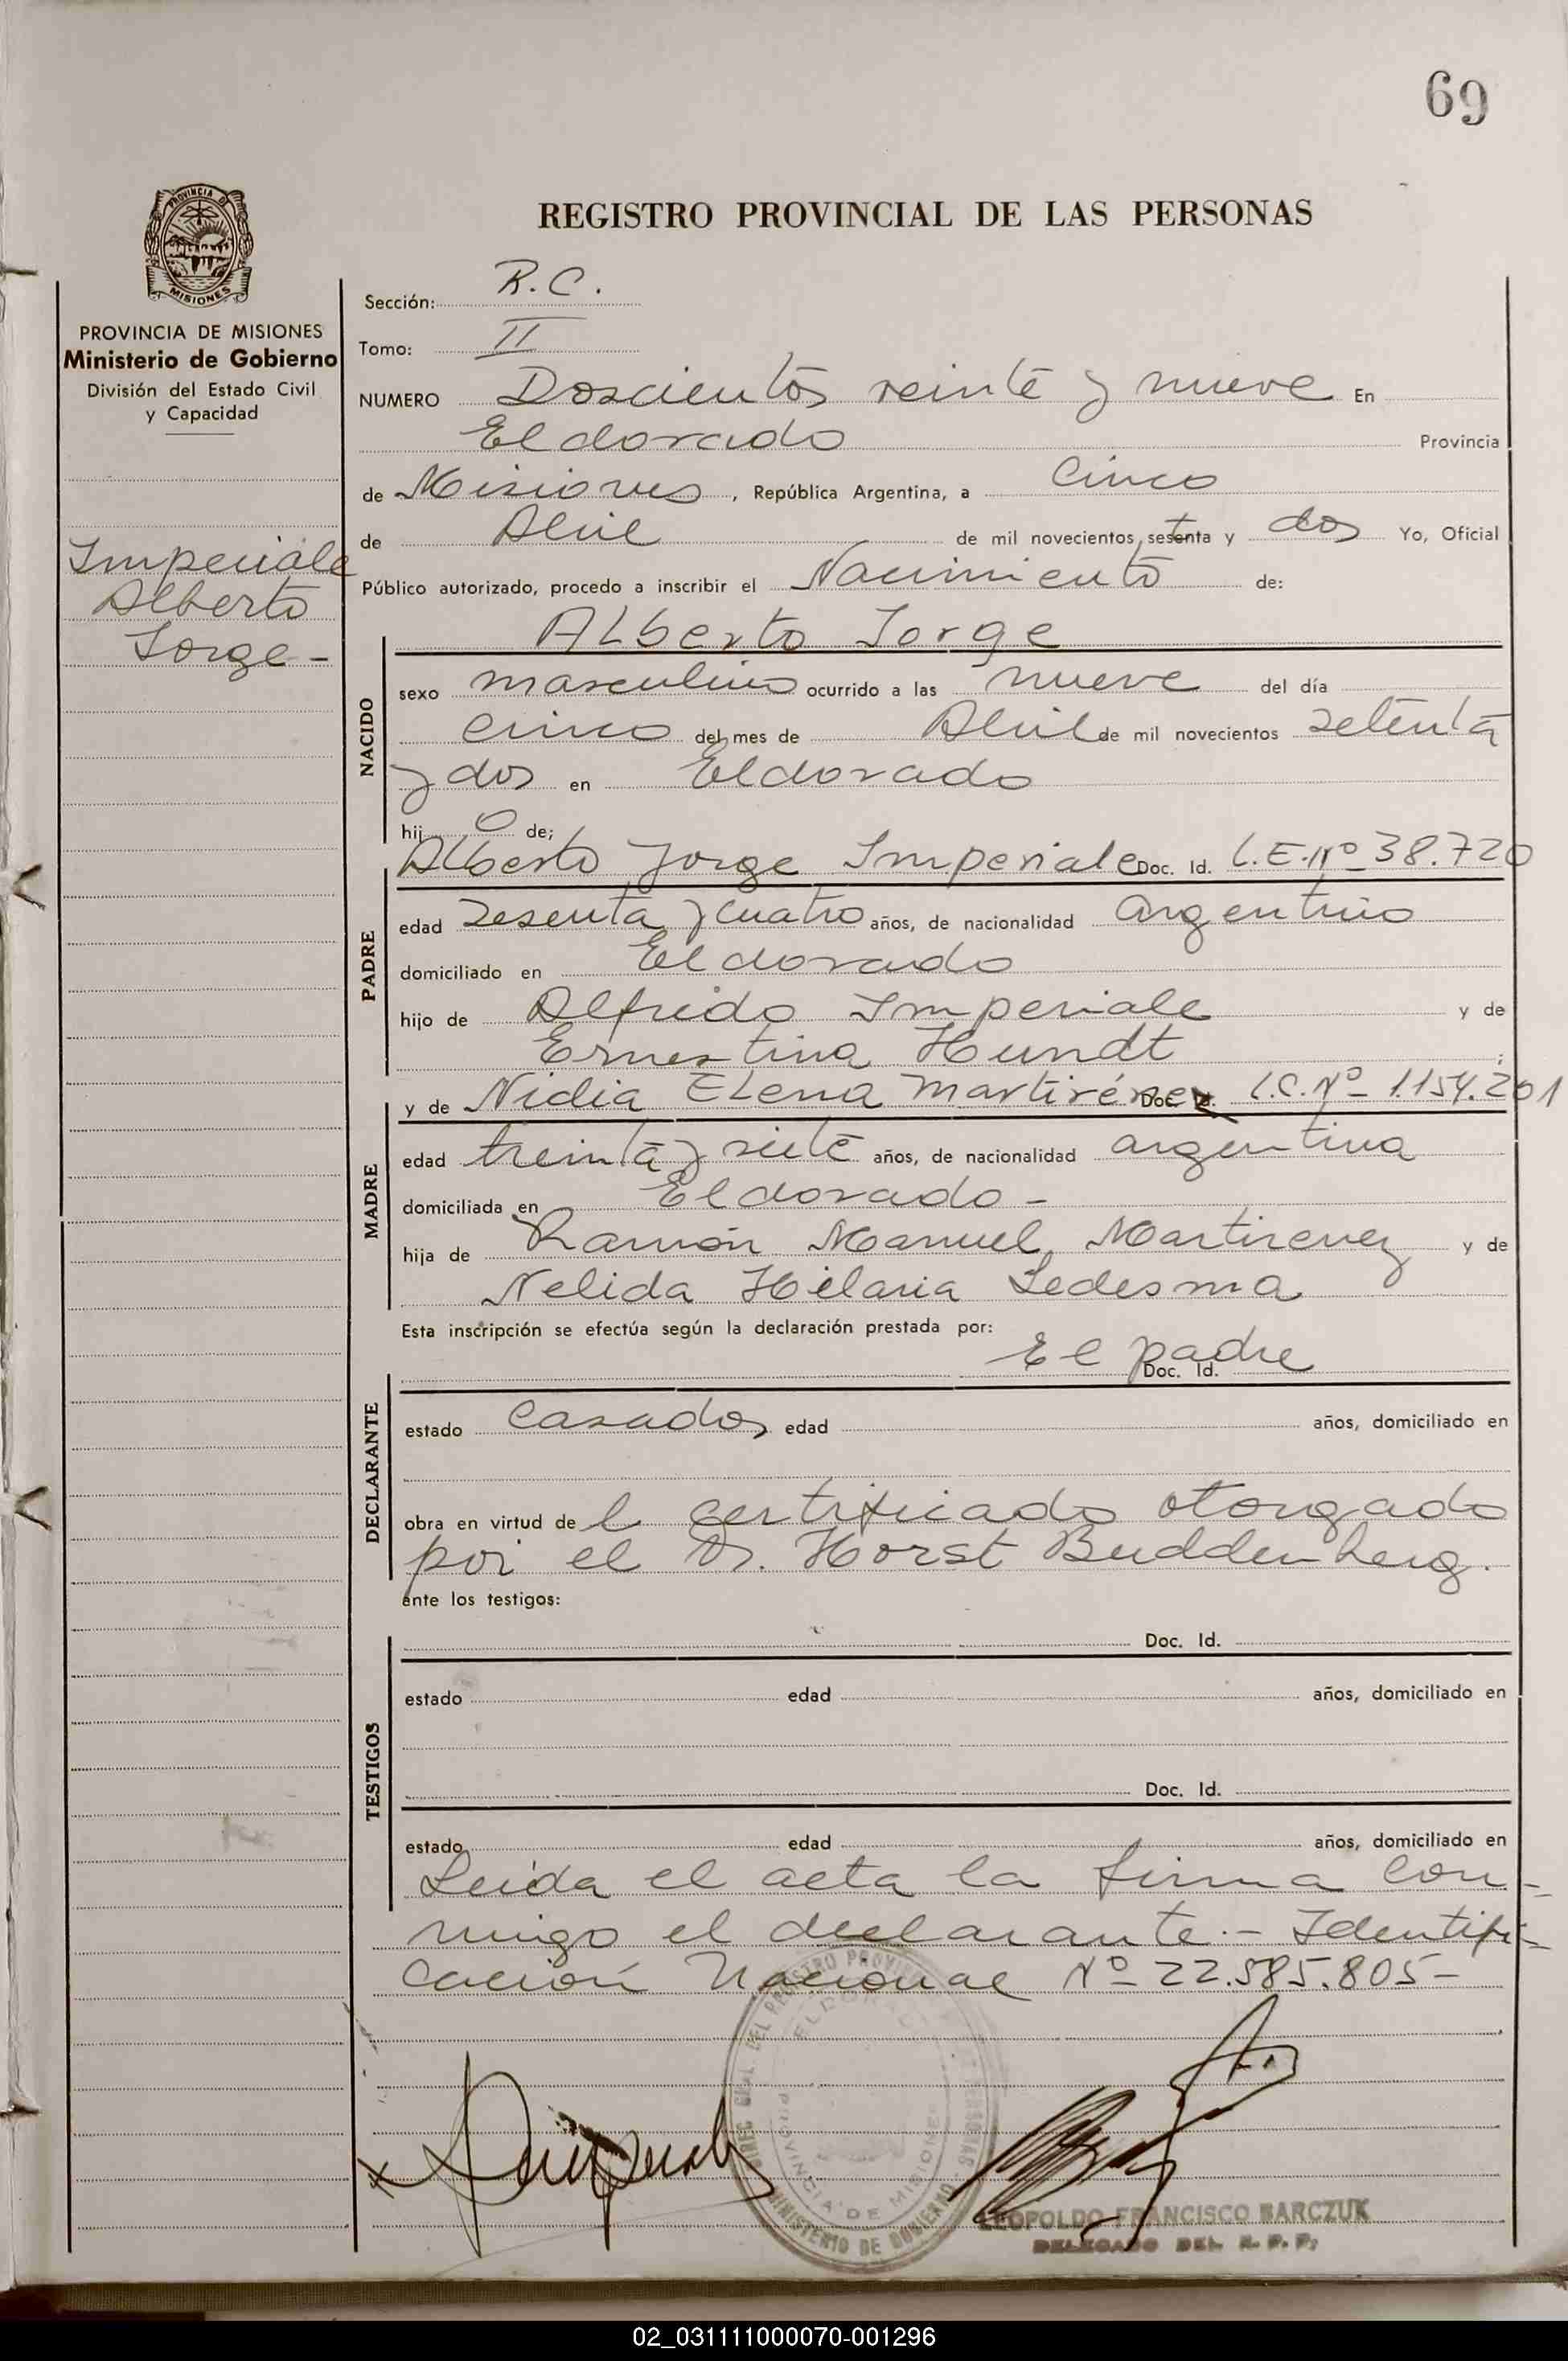 69
PROVINCIA DE
MISIONES
PROVINCIA DE MISIONES
Ministerio de Gobierno
División del Estado Civil
y Capacidad
Imperiale
Alberto
Jorge -
REGISTRO PROVINCIAL DE LAS PERSONAS
Sección: R.C.
Tomo: II
NUMERO Doscientos veinte y nueve En
Eldorado Provincia
de Misiones, República Argentina, a Cinco
de Abril de mil novecientos setenta y dos Yo, Oficial
Público autorizado, procedo a inscribir el Nacimiento de:
Alberto Jorge
NACIDO
sexo masculino ocurrido a las nueve del día
cinco del mes de Abril de mil novecientos setenta
y dos en Eldorado
hij o de;
Alberto Jorge Imperiale Doc. Id. L.E.Nº 38.720
PADRE
edad sesenta y cuatro años, de nacionalidad argentino
domiciliado en Eldorado
hijo de Alfredo Imperiale y de
Ernestina Hundt ;
y de Nidia Elena Martirénez Doc. Id. L.C.Nº 1.154.201
MADRE
edad treinta y siete años, de nacionalidad argentina
domiciliada en Eldorado -
hija de Ramón Manuel Martirenez y de
Nelida Hilaria Ledesma
Esta inscripción se efectúa según la declaración prestada por:
El padre Doc. Id.
DECLARANTE
estado casados edad años, domiciliado en
obra en virtud de l certificado otorgado
por el Dr. Horst Buddenberg.
ante los testigos:
Doc. Id.
TESTIGOS
estado edad años, domiciliado en
Doc. Id.
estado edad años, domiciliado en
Leida el acta la firma con-
migo el declarante.- Identifi-
cación Nacional Nº 22.585.805-
ELDORADO
PROVINCIA DE MISIONES
MINISTERIO DE GOBIERNO
LEOPOLDO FRANCISCO BARCZUK
DELEGADO DEL R. P. P.
02_031111000070-001296